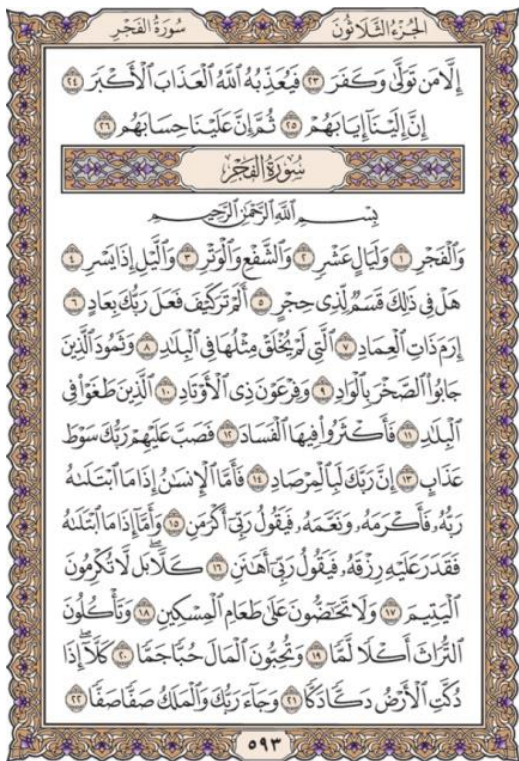 الجُزْءُ الثَّلَاثُونَ
سُورَةُ الفَجْرِ
إِلَّا مَن تَوَلَّىٰ وَكَفَرَ ٢٣ فَيُعَذِّبُهُ اللَّهُ الْعَذَابَ الْأَكْبَرَ ٢٤
إِنَّ إِلَيْنَآ إِيَابَهُمْ ٢٥ ثُمَّ إِنَّ عَلَيْنَا حِسَابَهُم ٢٦
سُورَةُ الفَجْرِ
بِسْمِ اللَّهِ الرَّحْمَٰنِ الرَّحِيمِ
وَالْفَجْرِ ١ وَلَيَالٍ عَشْرٍ ٢ وَالشَّفْعِ وَالْوَتْرِ ٣ وَاللَّيْلِ إِذَا يَسْرِ ٤
هَلْ فِي ذَٰلِكَ قَسَمٌ لِّذِي حِجْرٍ ٥ أَلَمْ تَرَ كَيْفَ فَعَلَ رَبُّكَ بِعَادٍ ٦
إِرَمَ ذَاتِ الْعِمَادِ ٧ الَّتِي لَمْ يُخْلَقْ مِثْلُهَا فِي الْبِلَٰدِ ٨ وَثَمُودَ الَّذِينَ
جَابُوا الصَّخْرَ بِالْوَادِ ٩ وَفِرْعَوْنَ ذِي الْأَوْتَادِ ١٠ الَّذِينَ طَغَوْا فِي
الْبِلَٰدِ ١١ فَأَكْثَرُوا فِيهَا الْفَسَادَ ١٢ فَصَبَّ عَلَيْهِمْ رَبُّكَ سَوْطَ
عَذَابٍ ١٣ إِنَّ رَبَّكَ لَبِالْمِرْصَادِ ١٤ فَأَمَّا الْإِنسَٰنُ إِذَا مَا ابْتَلَىٰهُ
رَبُّهُۥ فَأَكْرَمَهُۥ وَنَعَّمَهُۥ فَيَقُولُ رَبِّيٓ أَكْرَمَنِ ١٥ وَأَمَّآ إِذَا مَا ابْتَلَىٰهُ
فَقَدَرَ عَلَيْهِ رِزْقَهُۥ فَيَقُولُ رَبِّيٓ أَهَٰنَنِ ١٦ كَلَّا ۖ بَل لَّا تُكْرِمُونَ
الْيَتِيمَ ١٧ وَلَا تَحَٰٓضُّونَ عَلَىٰ طَعَامِ الْمِسْكِينِ ١٨ وَتَأْكُلُونَ
التُّرَاثَ أَكْلًا لَّمًّا ١٩ وَتُحِبُّونَ الْمَالَ حُبًّا جَمًّا ٢٠ كَلَّآ ۖ إِذَا
دُكَّتِ الْأَرْضُ دَكًّا دَكًّا ٢١ وَجَآءَ رَبُّكَ وَالْمَلَكُ صَفًّا صَفًّا ٢٢
٥٩٣